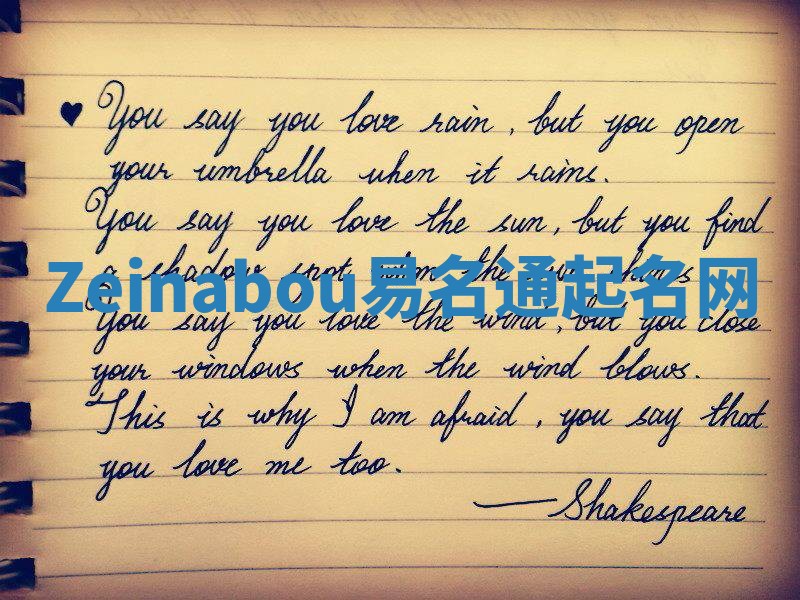 ♥ You say you love rain, but you open
your umbrella when it rains.
You say you love the sun, but you find
a shadow spot when the sun shines
Zeinabou易名通起名网
You say you love the wind, but you close
your windows when the wind blows.
This is why I am afraid, you say that
you love me too.
—Shakespeare